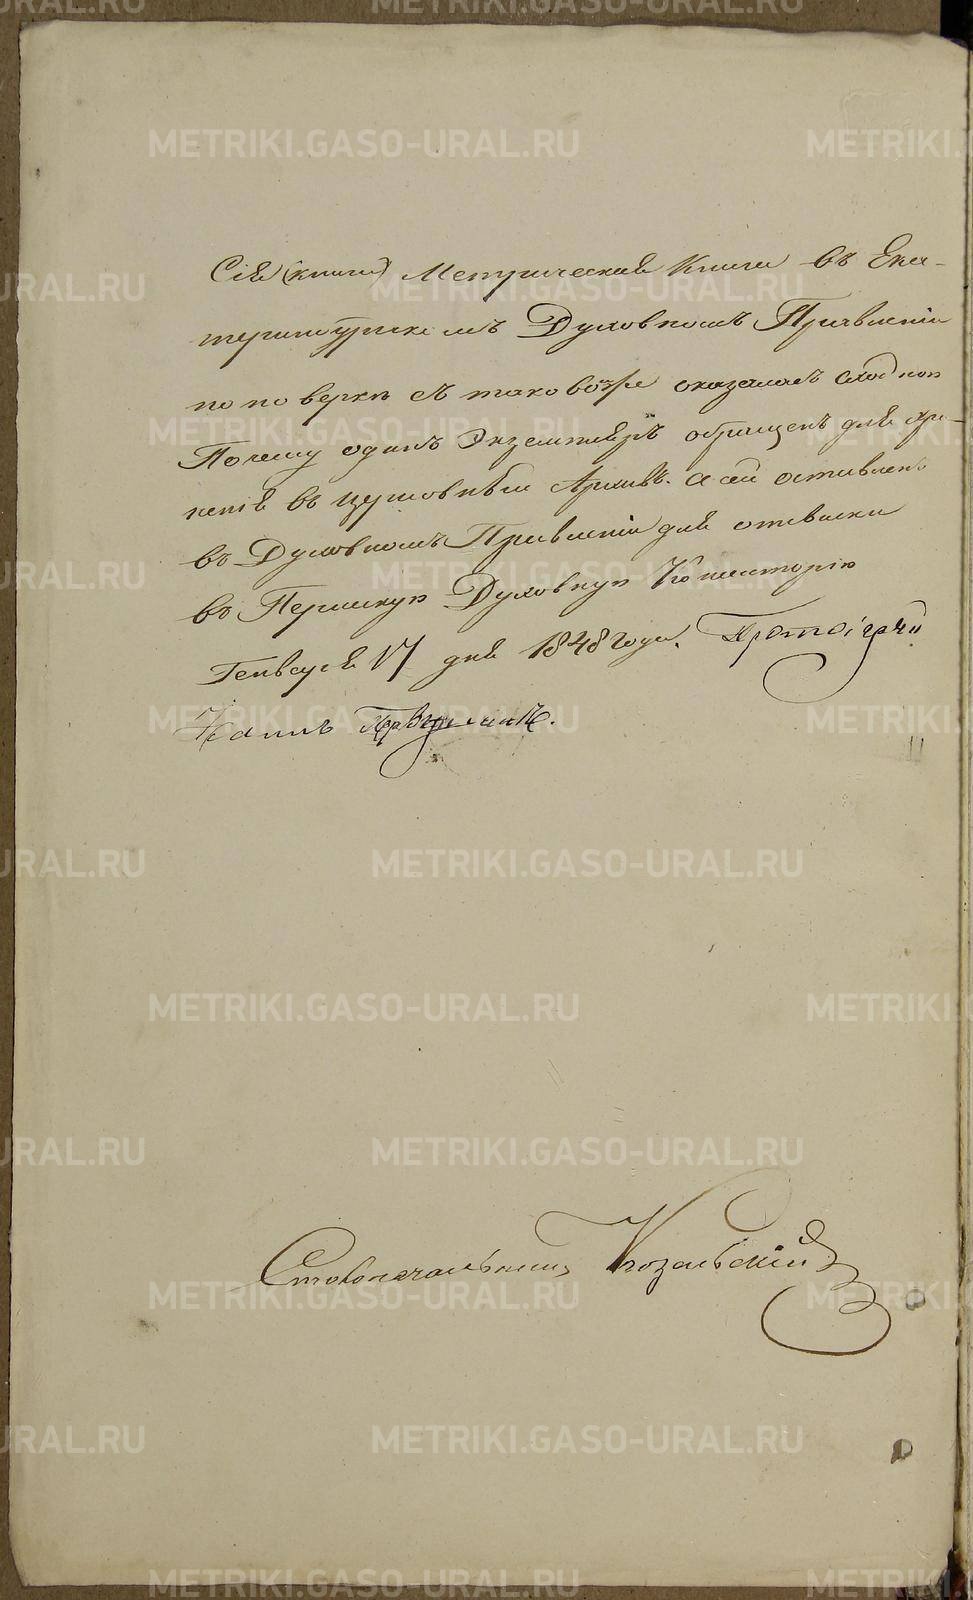 Сія (книга) Метрическая Книга въ Ека-
теринбургскомъ Духовномъ Правленіи
по поверкѣ съ таковоюже оказалась сходною
Почему одинъ Экземпляръ обращенъ для хра-
ненія въ церковный Архивъ. а сей оставленъ
въ Духовномъ Правленіи для отсылки
въ Пермскую Духовную Консисторію
Генваря 17 дня 1848 года. Протоіерей
Столоначальникъ Козельскій
METRIKI.GASO-URAL.RU